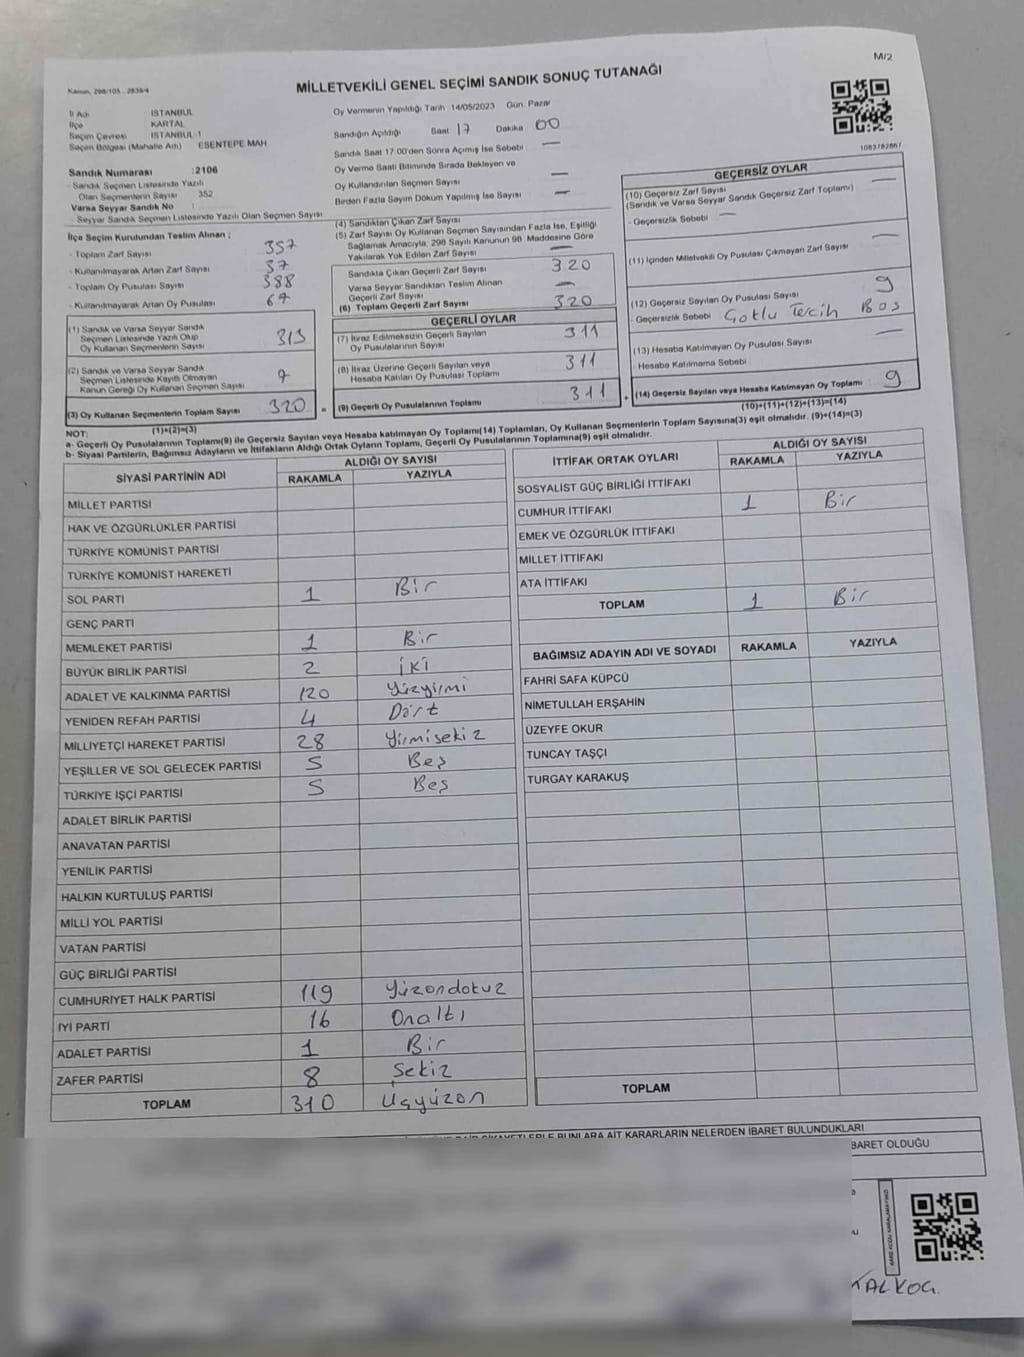 M/2
Kanun, 298/105 , 2839/4
MİLLETVEKİLİ GENEL SEÇİMİ SANDIK SONUÇ TUTANAĞI
İl Adı İSTANBUL
İlçe KARTAL
Seçim Çevresi İSTANBUL-1
Seçim Bölgesi (Mahalle Adı) ESENTEPE MAH
Sandık Numarası : 2106
- Sandık Seçmen Listesinde Yazılı
Olan Seçmenlerin Sayısı 352
Varsa Seyyar Sandık No :
- Seyyar Sandık Seçmen Listesinde Yazılı Olan Seçmen Sayısı
Oy Vermenin Yapıldığı Tarih :14/05/2023 Gün: Pazar
Sandığın Açıldığı Saat 17 Dakika 00
Sandık Saat 17:00'den Sonra Açımış İse Sebebi —
Oy Verme Saati Bitiminde Sırada Bekleyen ve
Oy Kullandırılan Seçmen Sayısı —
Birden Fazla Sayım Döküm Yapılmış İse Sayısı —
İlçe Seçim Kurulundan Teslim Alınan ;
- Toplam Zarf Sayısı 357
- Kullanılmayarak Artan Zarf Sayısı 37
- Toplam Oy Pusulası Sayısı 388
- Kullanılmayarak Artan Oy Pusulası 67
(1) Sandık ve Varsa Seyyar Sandık
Seçmen Listesinde Yazılı Olup
Oy Kullanan Seçmenlerin Sayısı 313
(2) Sandık ve Varsa Seyyar Sandık
Seçmen Listesinde Kayıtlı Olmayan
Kanun Gereği Oy Kullanan Seçmen Sayısı 7
(3) Oy Kullanan Seçmenlerin Toplam Sayısı 320 =
(1)+(2)=(3)
(4) Sandıktan Çıkan Zarf Sayısı
(5) Zarf Sayısı Oy Kullanan Seçmen Sayısından Fazla İse, Eşitliği
Sağlamak Amacıyla, 298 Sayılı Kanunun 98. Maddesine Göre
Yakılarak Yok Edilen Zarf Sayısı —
Sandıkta Çıkan Geçerli Zarf Sayısı 320
Varsa Seyyar Sandıktan Teslim Alınan
Geçerli Zarf Sayısı —
(6) Toplam Geçerli Zarf Sayısı 320
GEÇERLİ OYLAR
(7) İtiraz Edilmeksizin Geçerli Sayılan
Oy Pusulalarının Sayısı 311
(8) İtiraz Üzerine Geçerli Sayılan veya
Hesaba Katılan Oy Pusulası Toplamı 311
(9) Geçerli Oy Pusulalarının Toplamı 311 +
1083782867
GEÇERSİZ OYLAR
(10) Geçersiz Zarf Sayısı —
(Sandık ve Varsa Seyyar Sandık Geçersiz Zarf Toplamı)
- Geçersizlik Sebebi —
(11) İçinden Milletvekili Oy Pusulası Çıkmayan Zarf Sayısı —
(12) Geçersiz Sayılan Oy Pusulası Sayısı 9
- Geçersizlik Sebebi Çoklu Tercih Boş
(13) Hesaba Katılmayan Oy Pusulası Sayısı —
- Hesaba Katılmama Sebebi
(14) Geçersiz Sayılan veya Hesaba Katılmayan Oy Toplamı 9
(10)+(11)+(12)+(13)=(14)
NOT:
a- Geçerli Oy Pusulalarının Toplamı(9) ile Geçersiz Sayılan veya Hesaba katılmayan Oy Toplamı(14) Toplamları, Oy Kullanan Seçmenlerin Toplam Sayısına(3) eşit olmalıdır. (9)+(14)=(3)
b- Siyasi Partilerin, Bağımsız Adayların ve İttifakların Aldığı Ortak Oyların Toplamı, Geçerli Oy Pusulalarının Toplamına(9) eşit olmalıdır.
SİYASİ PARTİNİN ADI ALDIĞI OY SAYISI
RAKAMLA YAZIYLA
MİLLET PARTİSİ
HAK VE ÖZGÜRLÜKLER PARTİSİ
TÜRKİYE KOMÜNİST PARTİSİ
TÜRKİYE KOMÜNİST HAREKETİ
SOL PARTİ 1 Bir
GENÇ PARTİ
MEMLEKET PARTİSİ 1 Bir
BÜYÜK BİRLİK PARTİSİ 2 İki
ADALET VE KALKINMA PARTİSİ 120 Yüzyirmi
YENİDEN REFAH PARTİSİ 4 Dört
MİLLİYETÇİ HAREKET PARTİSİ 28 Yirmisekiz
YEŞİLLER VE SOL GELECEK PARTİSİ 5 Beş
TÜRKİYE İŞÇİ PARTİSİ 5 Beş
ADALET BİRLİK PARTİSİ
ANAVATAN PARTİSİ
YENİLİK PARTİSİ
HALKIN KURTULUŞ PARTİSİ
MİLLİ YOL PARTİSİ
VATAN PARTİSİ
GÜÇ BİRLİĞİ PARTİSİ
CUMHURİYET HALK PARTİSİ 119 Yüzondokuz
İYİ PARTİ 16 Onaltı
ADALET PARTİSİ 1 Bir
ZAFER PARTİSİ 8 Sekiz
TOPLAM 310 Üçyüzon
İTTİFAK ORTAK OYLARI ALDIĞI OY SAYISI
RAKAMLA YAZIYLA
SOSYALİST GÜÇ BİRLİĞİ İTTİFAKI
CUMHUR İTTİFAKI 1 Bir
EMEK VE ÖZGÜRLÜK İTTİFAKI
MİLLET İTTİFAKI
ATA İTTİFAKI
TOPLAM 1 Bir
BAĞIMSIZ ADAYIN ADI VE SOYADI RAKAMLA YAZIYLA
FAHRİ SAFA KÜPCÜ
NİMETULLAH ERŞAHİN
ÜZEYFE OKUR
TUNCAY TAŞÇI
TURGAY KARAKUŞ
TOPLAM
BUNLARA AİT KARARLARIN NELERDEN İBARET BULUNDUKLARI
BARET OLDUĞU
KARE KODU KARALAMAYINIZ!